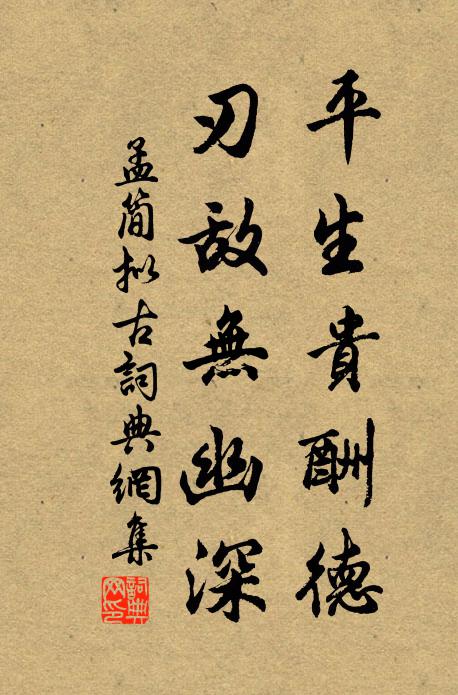 平生貴酬德
刃敵無幽深
孟簡拟古詞典網集
詞典网印